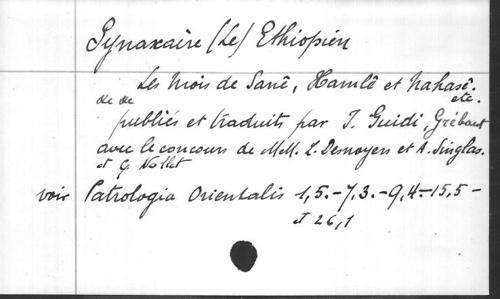 Synaxaire (Le) Ethiopien
Les Mois de Sanê, Hamlê et Nahasê.
de de etc.
publiés et traduits par I. Guidi, Grébaut
avec le concours de MM. L. Desnoyers et A. Singlas.
et G. Nollet
voir Patrologia Orientalis 1,5.-7,3.-9,4.-15,5-
et 26,1